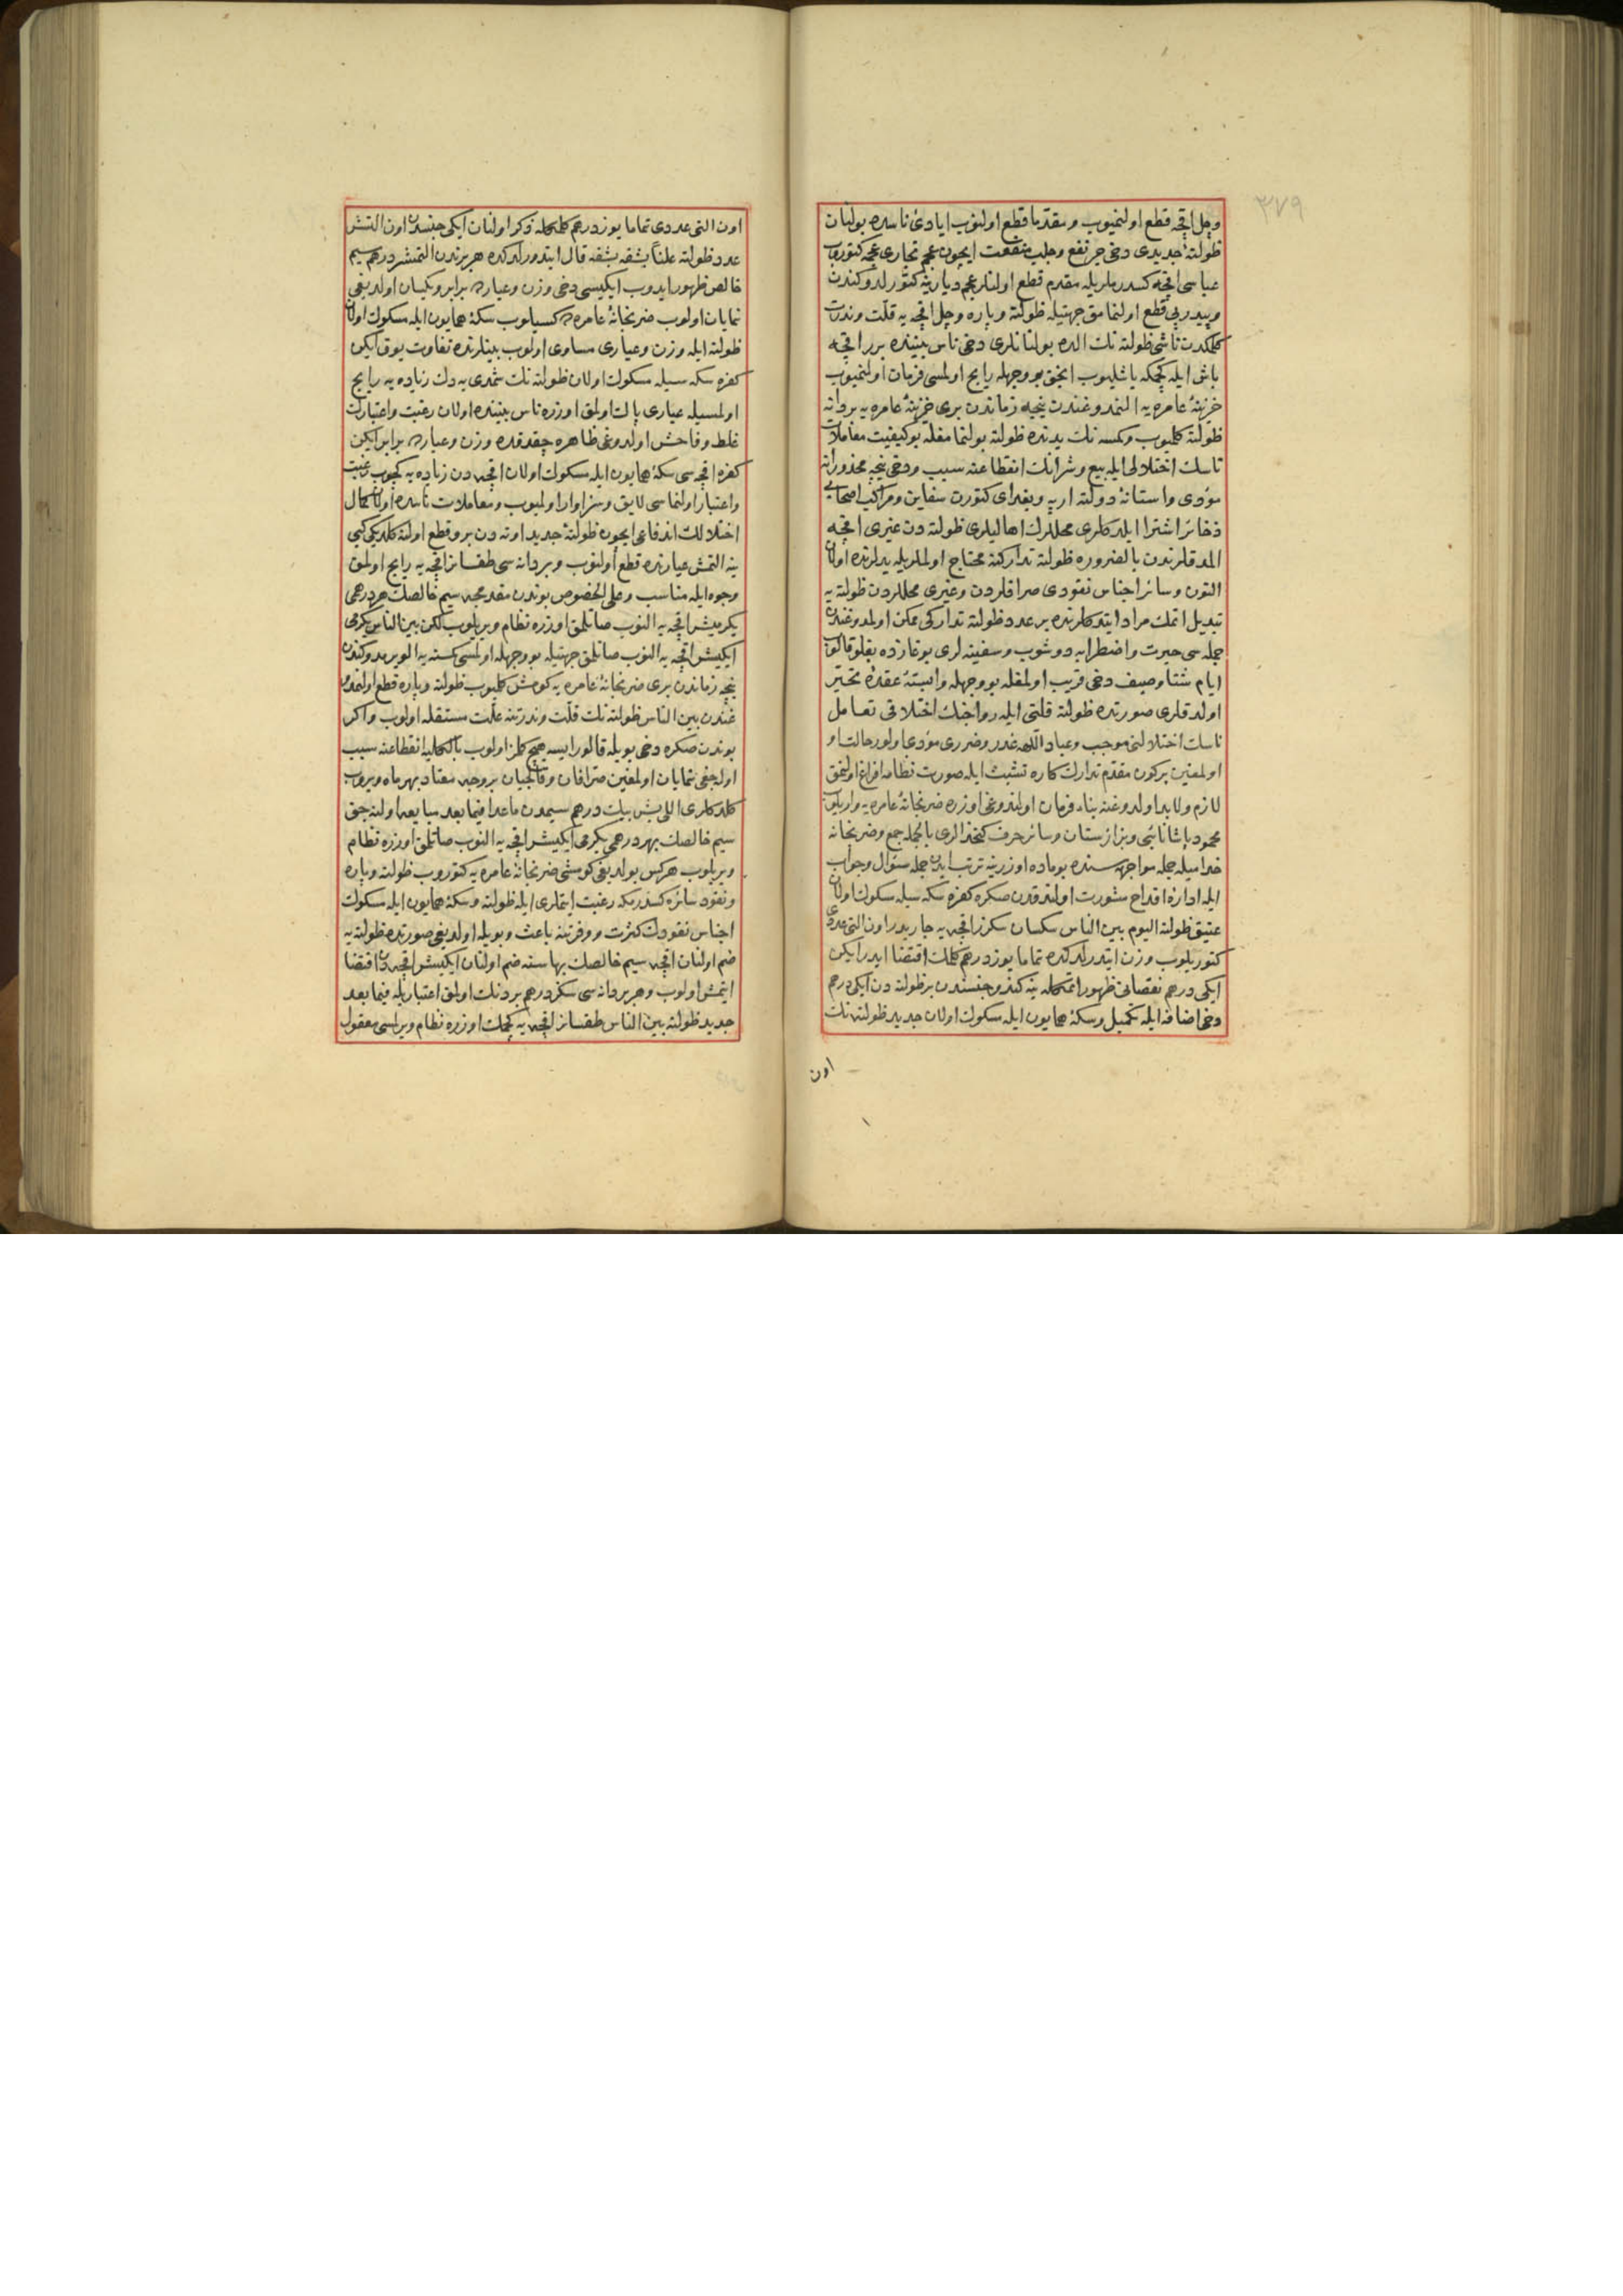 ٣٧٩
وچل اقچه قطع اولنمیوب ومقدّما قطع اولنوب ایادئ ناسده بولنان
ظولتهٔ جدیدی دخی جر نفع وجلب منفعت ایچون عجم تجاری عجمه کتوروب
عباسی اقچه کسدرملریله مقدم قطع اولنانلر عجم دیارینه کتورلدوکندن
وپیدرپی قطع اولنمامق جهتیله ظولته وپاره وچل اقچه یه قلّت وندرت
کلمکدن ناشی ظولته نك الده بولنانلری دخی ناس بیننده برر اقچه
باش ایله کچمکه باشلیوب انجق بو وجهله رایج اولمسی فرمان اولنمیوب
خزینهٔ عامره یه النمدوغندن نیجه زماندن بری خزینهٔ عامره یه بر دانه
ظولته کلمیوب وکمسه نك یدنده ظولته بولنمامغله بو کیفیت معاملات
ناسك اختلالی ایله بیع وشرانك انقطاعنه سبب ودخی نیجه محذوراته
مؤدی واستانهٔ دولته ارپه وبغدای کتورن سفاین ومراکب اصحابی
ذخائر اشترا ایلدکلری محللرك اهالیلری ظولته دن غیری اقچه
المدقلرندن بالضروره ظولته تدارکنه محتاج اولملریله یدلرنده اولان
التون وسائر اجناس نقودی صرافلردن وغیری محللردن ظولته یه
تبدیل اتمك مراد ایتدکلرنده بر عدد ظولته تدارکی ممکن اولمدوغندن
جمله سی حیرت واضطرابه دوشوب وسفینه لری بوغازده بغلو قالوب
ایام شتا وصیف دخی قریب اولمغله بو وجهله وابستهٔ عقدهٔ تحیّر
اولدقلری صورتده ظولته قلتی ایله رواجنك اختلافی تعامل
ناسك اختلالنی موجب وعباد اللهه غدر وضرری مؤدی اولور حالت او
اولمغین برکون مقدّم تدارك کاره تشبث ایله صورت نظامه افراغ اولنمق
لازم ولابد اولدوغنه بناء فرمان اولندوغی اوزره ضربخانهٔ عامره یه واریلوب
محمود پاشا نائبی وبزازستان وسائر حرف کتخدالری بالجمله جمع وضربخانه
خدامیله جمله مواجهه سنده بو ماده اوزرینه ترتب ایدن جمله سئوال وجواب
ایله ادارهٔ اقداح مشورت اولندقدن صکره کفره سکه سیله مسکوك اولان
عتیق ظولته الیوم بین الناس سکسان سکزر اقچه یه جاریدر اون التی عددی
کتوریلوب وزن ایتدرلدکده تماما یوز درهم کلمك اقتضا ایدر ایکن
ایکی درهم نقصانی ظهور اتمکله ینه کندو جنسندن بر ظولته دن ایکی درهم
دخی اضافه ایله تکمیل وسکهٔ همایون ایله مسکوك اولان جدید ظولته نك
اون
اون التی عددی تماما یوز درهم کلمکله ذکر اولنان ایکی جنسدن اون التشر
عدد ظولته علناً بشقه بشقه قال ایتدورلدکده هر برندن التمشر درهم سیم
خالص ظهور ایدوب ایکیسی دخی وزن وعیارده برابر ویکسان اولدیغی
نمایان اولوب ضربخانهٔ عامره ده کسیلوب سکهٔ همایون ایله مسکوك اولان
ظولته ایله وزن وعیاری مساوی اولوب بینلرنده تفاوت یوق ایکن
کفره سکه سیله مسکوك اولان ظولته نك شمدی یه دك زیاده یه رایج
اولمسیله عیاری پاك اولمق اوزره ناس بیننده اولان رغبت واعتبارك
غلط وفاحش اولدوغی ظاهره چقدقده وزن وعیارده برابر ایکن
کفره اقچه سی سکهٔ همایون ایله مسکوك اولان اقچه دن زیاده یه کچوب رغبت
واعتبار اولنماسی لایق وسزاوار اولمیوب ومعاملات ناسده اولان کمال
اختلالك اندفاعی ایچون ظولتهٔ جدید اوته دن برو قطع اولنه کلدیکی کبی
ینه التمش عیارنده قطع اولنوب وبر دانه سی طقسانز اقچه یه رایج اولمق
وجوه ایله مناسب وعلی الخصوص بوندن مقدمجه سیم خالصك هر درهمی
یکرمیشر اقچه یه النوب صاتلمق اوزره نظام ویریلوب لکن بین الناس یکرمی
ایکیشر اقچه یه النوب صاتلمق جهتیله بو وجهله اولمسی کمسنه یه الویرمدوکندن
نیجه زماندن بری ضربخانهٔ عامره یه کومش کلمیوب ظولته وپاره قطع اولنمدو
غندن بین الناس ظولته نك قلّت وندرتنه علّت مستقله اولوب واکر
بوندن صکره دخی بویله قالور ایسه هیچ کلمز اولوب بالکلیه انقطاعنه سبب
اوله جغی نمایان اولمغین صرافان وقالجیان بر وجه معتاد بهر ماه ویروب
کلدکلری اللی بش بیك درهم سیمدن ماعدا فیما بعد مبایعه اولنه جق
سیم خالصك بهر درهمی یکرمی ایکیشر اقچه یه النوب صاتلمق اوزره نظام
ویریلوب هرکس بولدیغی کومشی ضربخانهٔ عامره یه کتوروب ظولته وپاره
ونقود سائره کسدرمکه رغبت ایتملری ایله ظولته وسکهٔ همایون ایله مسکوك
اجناس نقودك کثرت ووفرتنه باعث وبویله اولدیغی صورتده ظولته یه
ضم اولنان اقچه سیم خالصك بهاسنه ضم اولنان ایکیشر اقچه دن اقتضا
ایتمش اولوب وهر بر دانه سی سکز درهم بر دنك اولمق اعتباریله فیما بعد
جدید ظولته بین الناس طقسانز اقچه یه کچمك اوزره نظام ویرلسی معقول